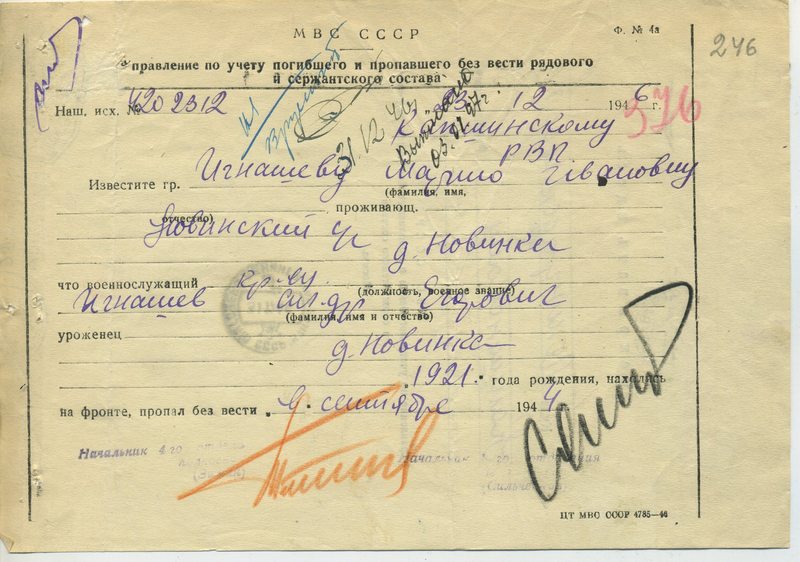 МВС СССР
Ф. № 4а
246
правление по учету погибшего и пропавшего без вести рядового
й сержантского состава
Наш. исх. № 4202312
23 12 1946 г.
31.12.46
03.01.47г.
376
Капшинскому
РВК
Известите гр. Игнашеву Марию Ивановну
(фамилия, имя,
отчество)
проживающ.
Новинский с/с д. Новинка
что военнослужащий кр-ец
(должность, военное звание)
Игнашев Ал-др Егорович
(фамилия, имя и отчество)
уроженец
д. Новинка
1921. года рождения, находясь
на фронте, пропал без вести „ 9. сентябре 1944
Начальник 4-го отдела
Начальник отделения
ЦТ МВС СССР 4785—46